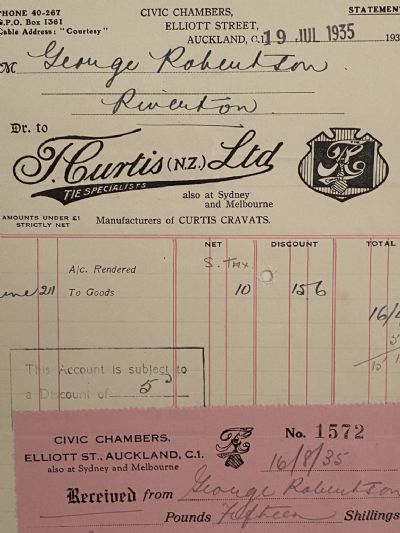 PHONE 40-267
G.P.O. Box 1361
Cable Address: "Courtesy"
CIVIC CHAMBERS,
ELLIOTT STREET,
AUCKLAND, C.1.
STATEMENT
19 JUL 1935
193
M George Robertson
Riverton.
Dr. to
T. Curtis (N.Z.) Ltd
TIE SPECIALISTS
also at Sydney
and Melbourne
AMOUNTS UNDER £1
STRICTLY NET
Manufacturers of CURTIS CRAVATS.
NET DISCOUNT TOTAL
A/c. Rendered S. Tax
To Goods 10 15 6
16/4
This Account is subject to
a Discount of 5
CIVIC CHAMBERS,
ELLIOTT ST., AUCKLAND, C.1.
also at Sydney and Melbourne
No. 1572
16/8/35
Received from George Robertson
Pounds Fifteen Shillings